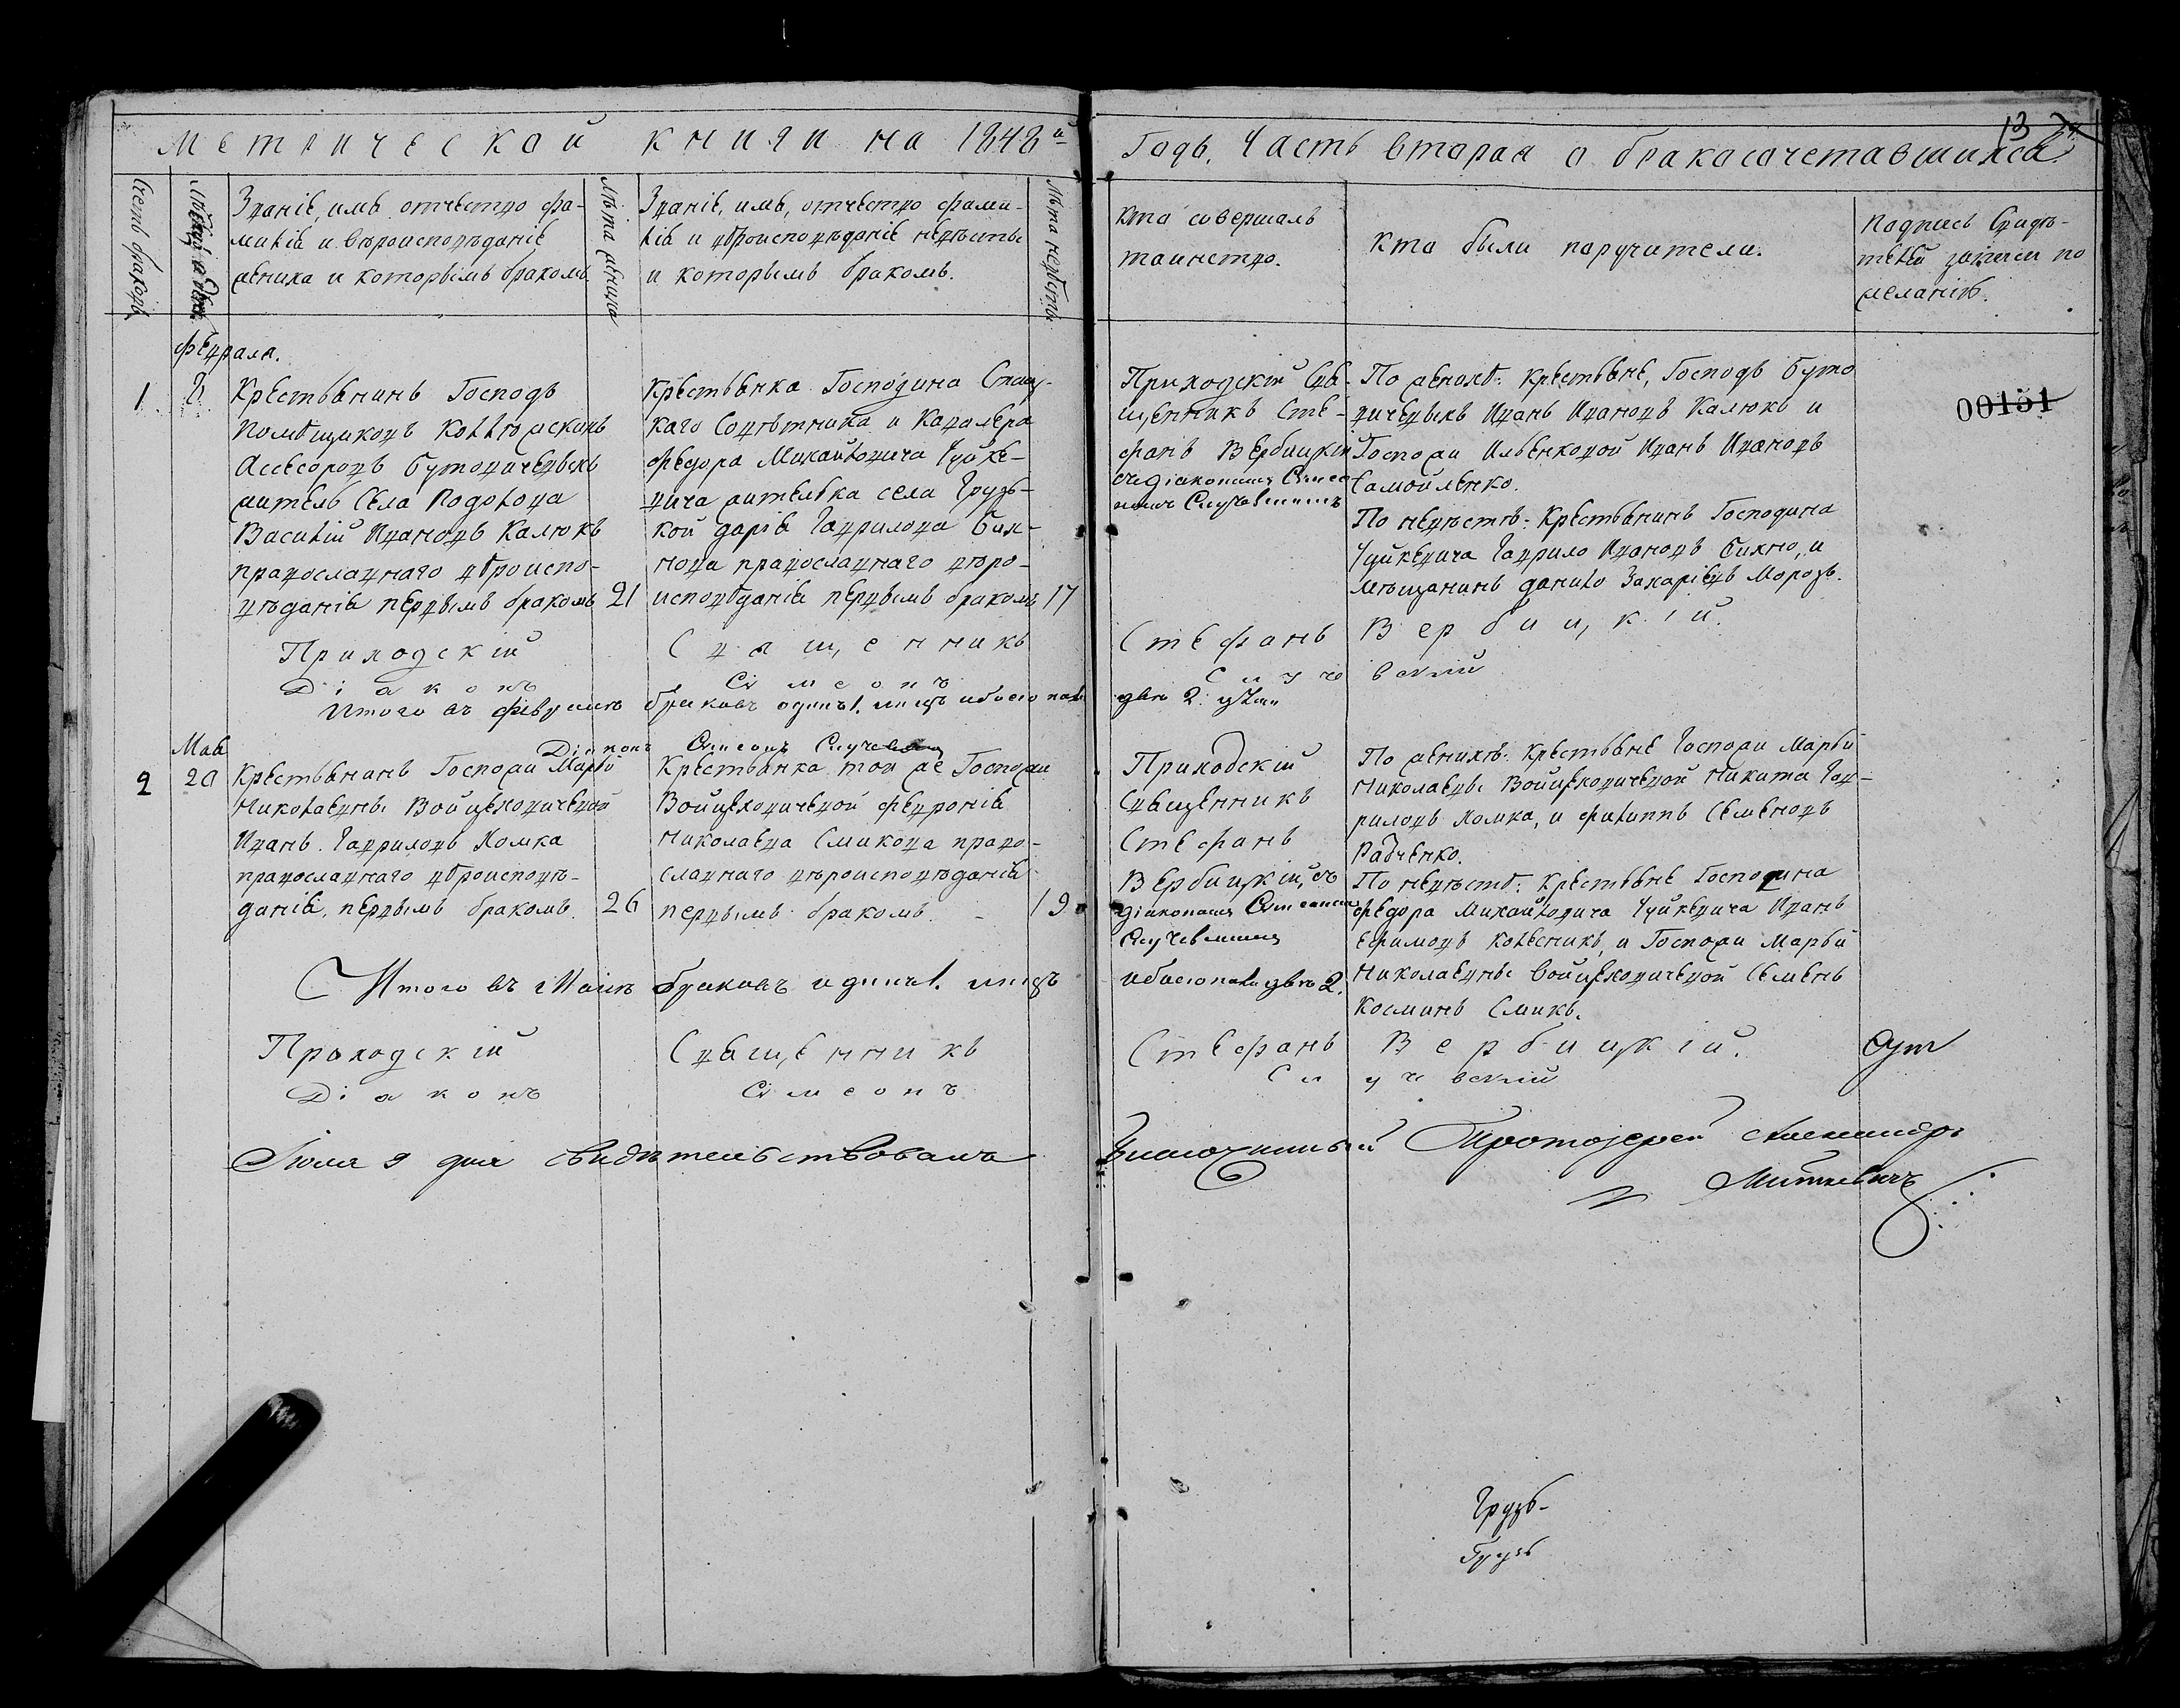 Метрической книги на 1848й
Годъ, Часть вторая о бракосочетавшихся.
13
Счетъ браковъ
Мѣсяцъ и день
Званіе, имя отчество фа-
милія и вѣроисповѣданіе
жениха и которымъ бракомъ
Лѣта жениха
Званіе, имя, отчество фами-
лія и вѣроисповѣданіе невѣсты
и которымъ бракомъ.
Лѣта невѣсты
Кто совершалъ
таинство.
Кто были поручители.
Подпись Свидѣ-
телей записи по
желанію.
Февраля.
1
8
Крестьянинъ Господъ
Помѣщиковъ Коллѣжскихъ
Ассесоровъ Бутовичевыхъ
житель Села Подолова
Василій Ивановъ Калюкъ
православнаго вѣроиспо-
вѣданія первымъ бракомъ
21
Крестьянка Господина Статс-
каго Совѣтника и Кавалера
Федора Михайловича Чуйке-
вича жителька села Грузь-
кой Дарія Гаврилова Бих-
нова православнаго вѣро-
исповѣданія первымъ бракомъ
17
Приходскій Свя-
щенникъ Сте-
фанъ Вербицкій
съ діакономъ Симео-
номъ Случевскимъ
По женихѣ: Крестьяне, Господъ Буто
вичевыхъ Иванъ Ивановъ Калюкъ и
Госпожи Ильенковой Иванъ Ивановъ
Самойленко.
По невѣстѣ: Крестьянинъ Господина
Чуйкевича Гаврило Ивановъ Бихно, и
мѣщанинъ Данило Захаріевъ Морозъ.
00151
Приходскій Священникъ Стефанъ Вербицкій.
Діаконъ Симеонъ Случевскій
Итого въ февралѣ браковъ одинъ 1. лицъ обоего пола
два 2.
Діаконъ Симеонъ Случевскій
Мая
2
20
Крестьянинъ Госпожи Марьи
Николаевны Войцеховичевой
Иванъ Гавриловъ Хомка
православнаго вѣроисповѣ-
данія, первымъ бракомъ.
26
Крестьянка той же Госпожи
Войцеховичевой Февронія
Николаева Смикова право-
славнаго вѣроисповѣданія
первымъ бракомъ. -
19
Приходскій
Священникъ
Стефанъ
Вербицкій, съ
діакономъ Симеономъ
Случевскимъ
По женихѣ: Крестьяне Госпожи Марьи
Николаевы Войцеховичевой Никита Гав-
риловъ Хомка, и Филиппъ Семеновъ
Радченко.
По невѣстѣ: Крестьяне Господина
Федора Михайловича Чуйкевича Иванъ
Ефимовъ Колесникъ, и Госпожи Марьи
Николаевны Войцеховичевой Семенъ
Косминъ Смикъ.
Итого въ Маіи браковъ одинъ 1. лицъ обоего пола два 2.
Приходскій Священникъ Стефанъ Вербицкій.
Діаконъ Симеонъ Случевскій
Іюля 9 дня свидѣтельствовалъ Благочинный Протоіерей Александръ
Миткевичъ
Грузь-
Грузь